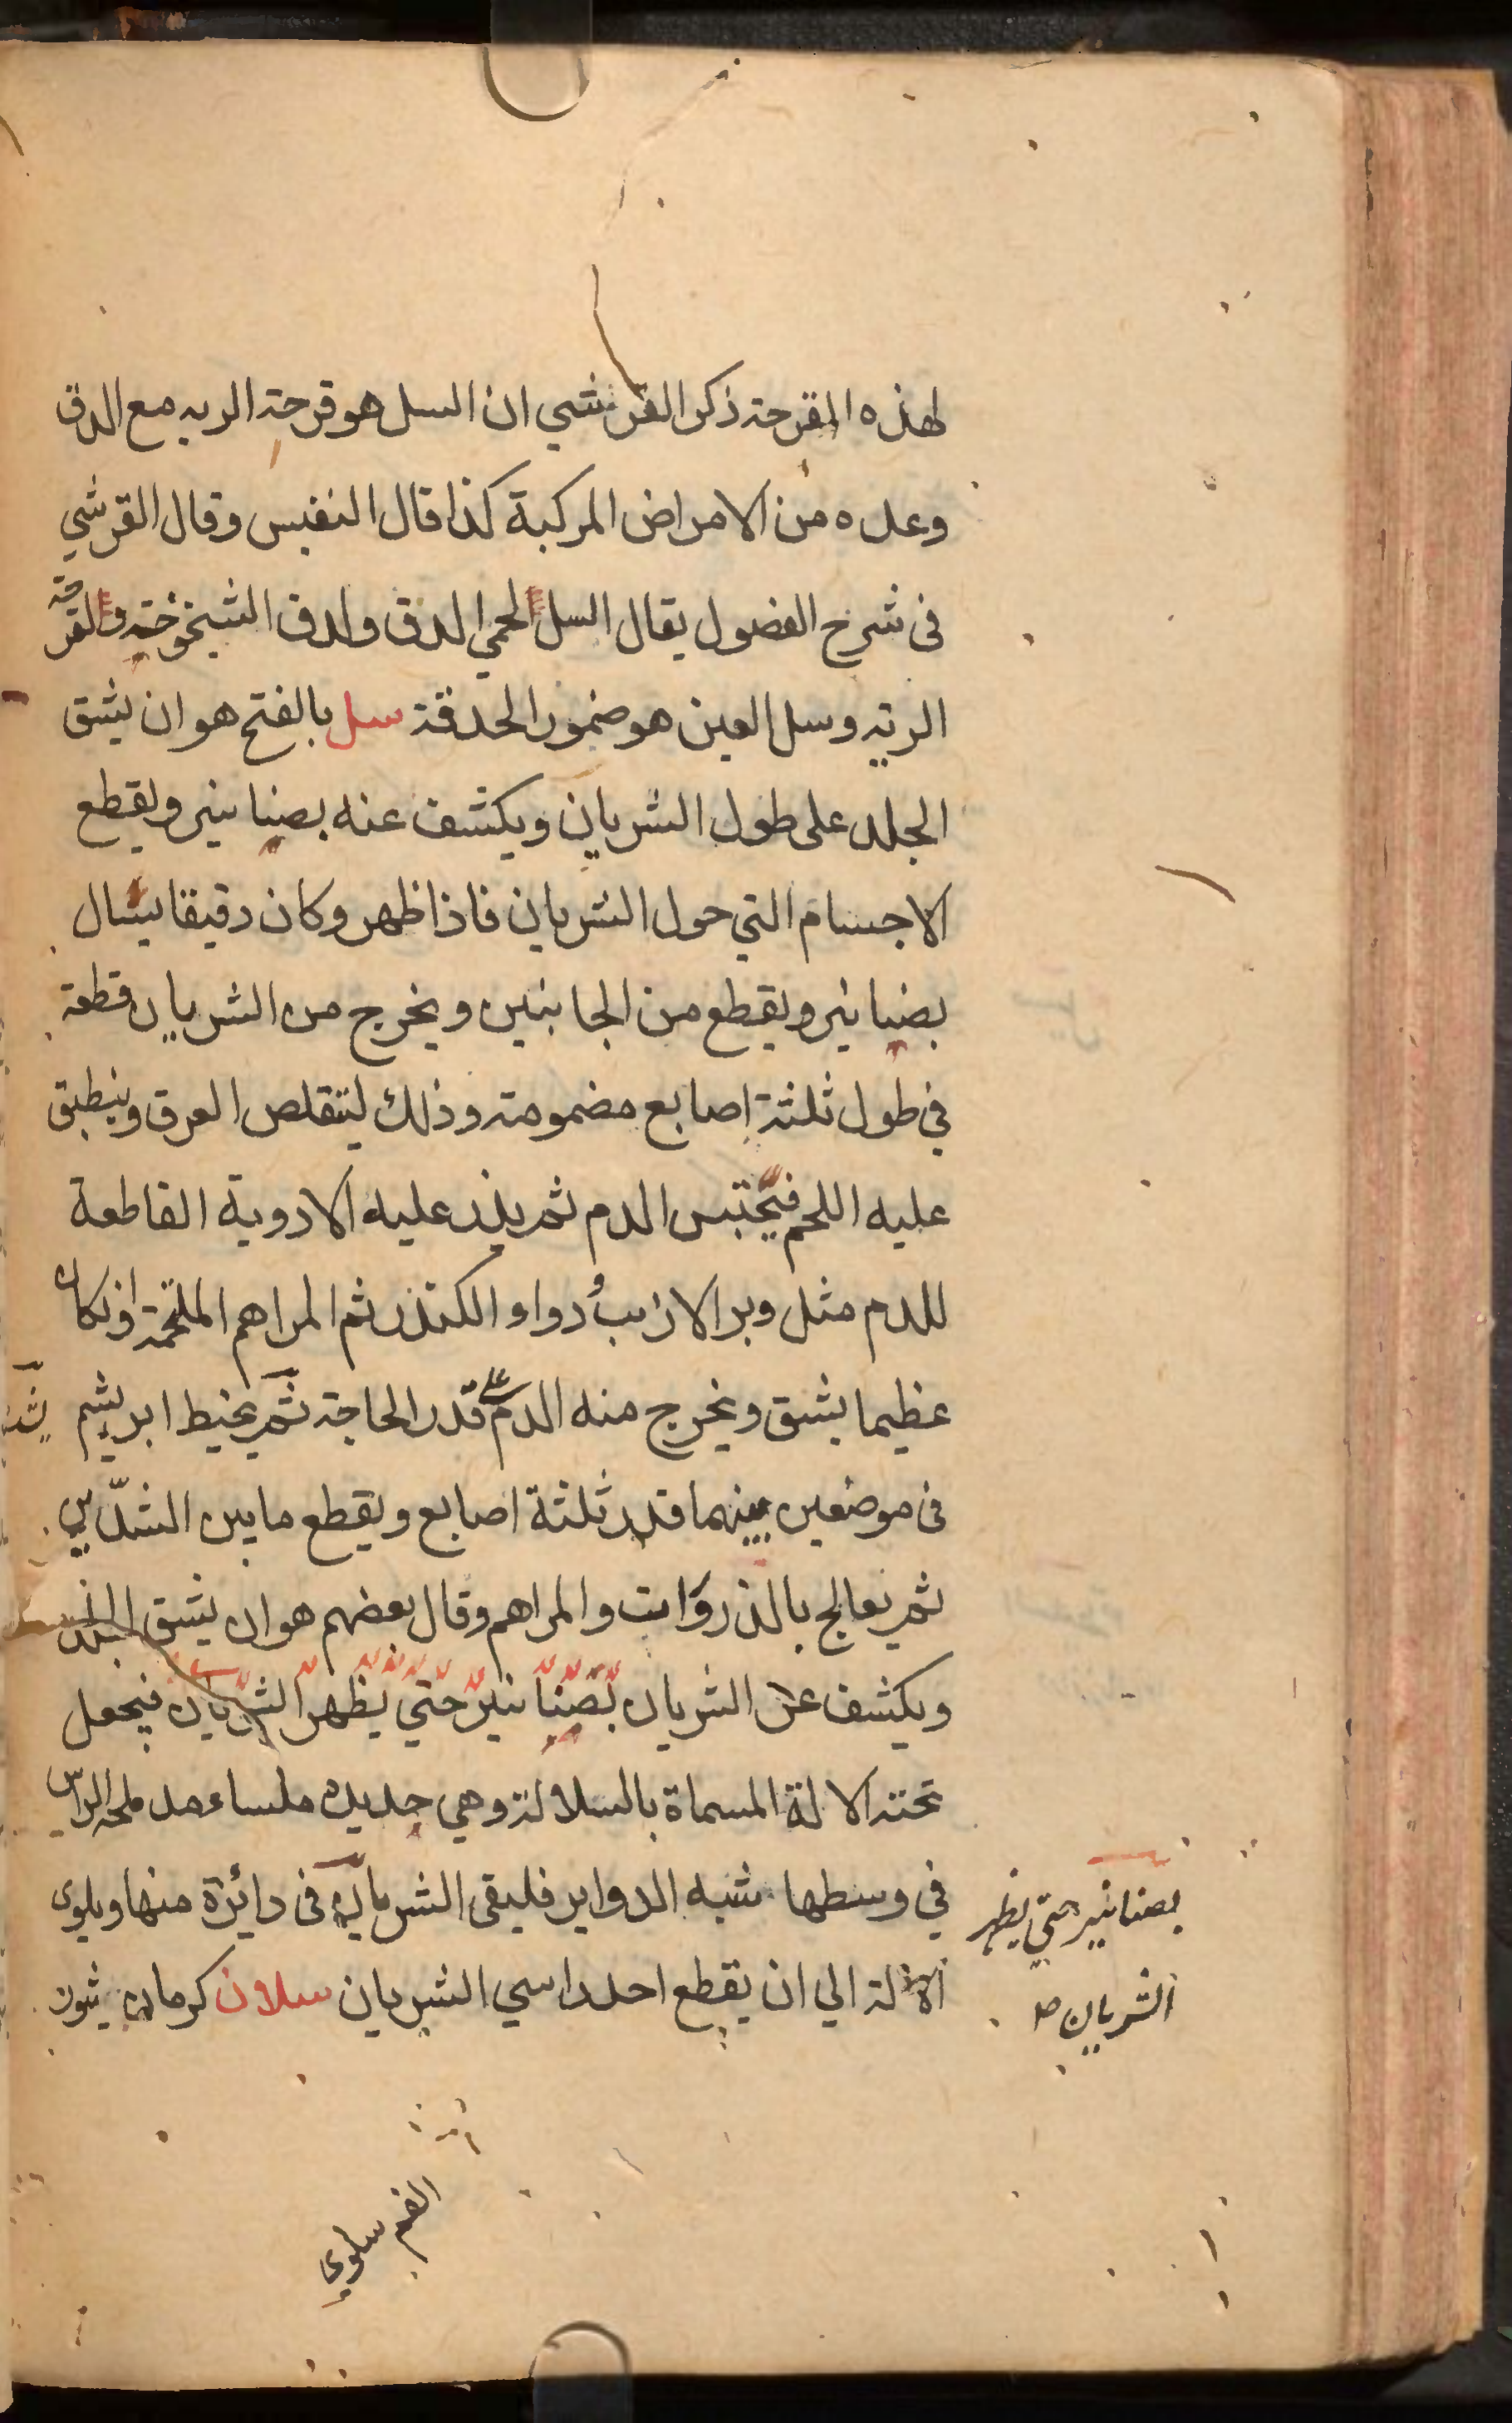 لهذه المقرحة ذكر القرشي ان السل هو قرحة الريه مع الدق
وعده من الامراض المركبة كذا قال النفيس وقال القرشي
فى شرح الفصول يقال السل لحمي الدق ولدق الشيخوخة ولقرحة
الرئة وسل العين هو ضمور الحدقة سل بالفتح هو ان يشق
الجلد على طول الشريان ويكشف عنه بصنانير ويقطع
الاجسام التي حول الشريان فاذا ظهر وكان دقيقا يشال
بصنانير ويقطع من الجانبين ويخرج من الشريان قطعة
في طول ثلثة اصابع مضمومة وذلك ليتقلص العرق وينطبق
عليه اللحم فيحتبس الدم ثم يذر عليه الادوية القاطعة
للدم مثل وبر الارنب ودواء الكندر ثم المراهم الملحمة وانكان
عظيما يشق ويخرج منه الدم على قدر الحاجة ثم بخيط ابريشم يشد
فى موضعين بينهما قدر ثلثة اصابع ويقطع ما بين الشدّين
ثم يعالج بالذرورات والمراهم وقال بعضهم هو ان يشق الجلد
ويكشف عن الشريان بصنانير حتي يظهر الشريان فيجعل
تحته الالة المسماة بالسلالة وهي حديدة ملساء مدملحة الراس
في وسطها شبه الدواير فليقى الشريان فى دائرة منها ويلوى
الالة الي ان يقطع احد راسي الشريان سلان كرمان ثيون
بصنانير حتي يظهر
الشريان صد
الغم سلوي